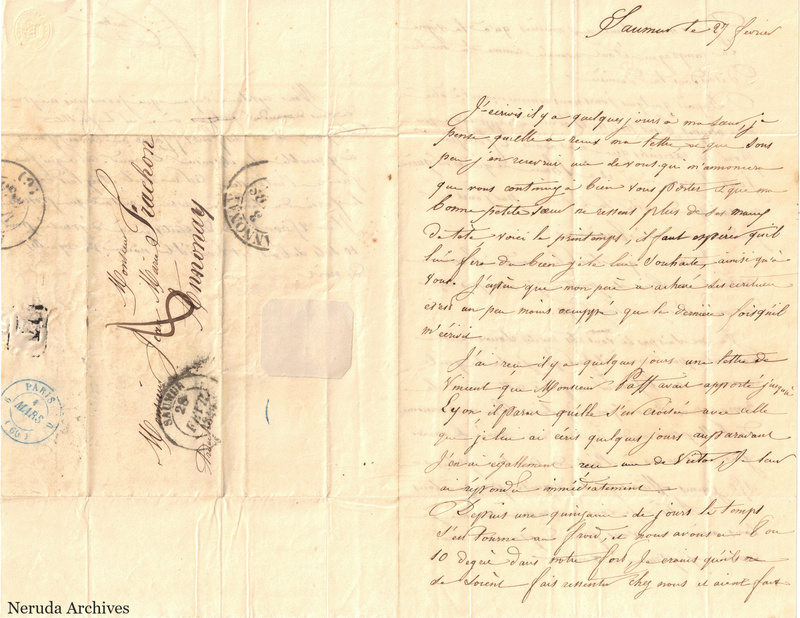 Saumur le 27 février
J'écrivis il y a quelques jours à ma sœur, je
pense qu'elle a reçue ma lettre, et que sous
peu j'en recevrai une de vous qui m'annoncera
que vous continuez à bien vous porter et que ma
bonne petite sœur ne ressent plus de ses maux
de tete voici le printemps, il faut espérer qu'il
lui fera du bien je le lui souhaite, ainsi qu'à
vous. J'espère que mon père a achevé ses
et est un peu moins occuppé que la dernière fois qu'il
m'écrivit.
J'ai reçu il y a quelques jours une lettre de
que Monsieur avait apporté jusqu'à
Lyon il parait qu'elle s'est croisée avec celle
que je lui ai écris quelques jours auparavant
J'en ai égallement reçu une de Victor, Je leur
ai repondu immédiatement.
Depuis une quinzaine de jours le temps
s'est tourné au froid, et nous avons eu 8 ou
10 degré dans notre fort, Je crains qu'ils ne
se soient fais ressentir chez nous et aient fait
Monsieur
Monsieur
Jean Marie Frachon
Annonay
SAUMUR
28
FEVR
ANNONAY
PARIS
MARS
(60)
Neruda Archives